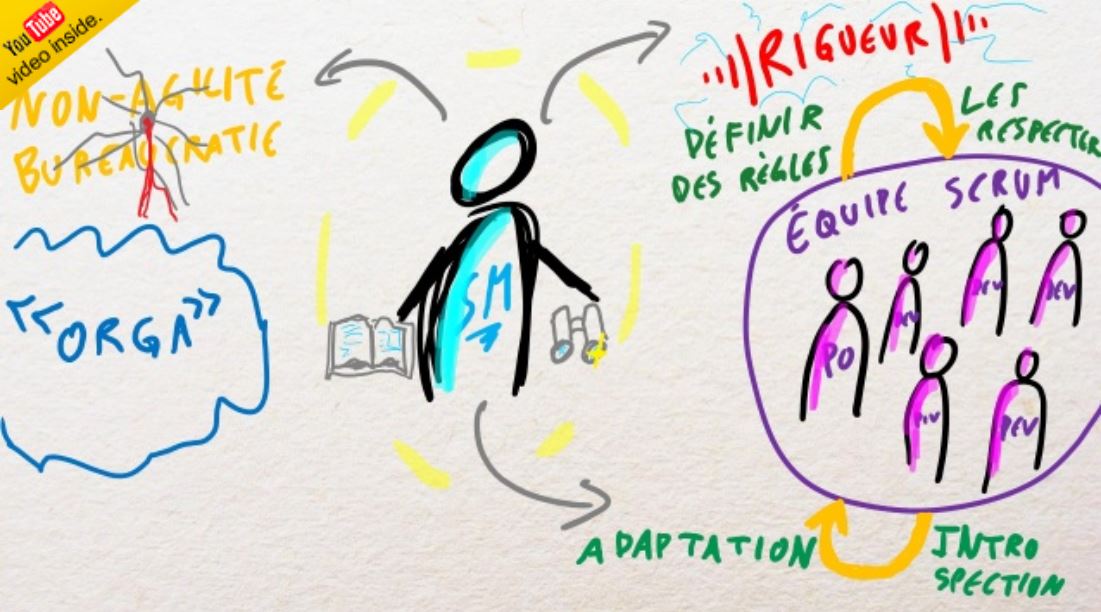 YouTube
video inside.
NON-AGILITÉ
BUREAUCRATIE
"ORGA"
SM
RIGUEUR
DÉFINIR
DES RÈGLES
LES
RESPECTER
ÉQUIPE SCRUM
PO
DEV
DEV
DEV
DEV
DEV
ADAPTATION
INTRO
SPECTION